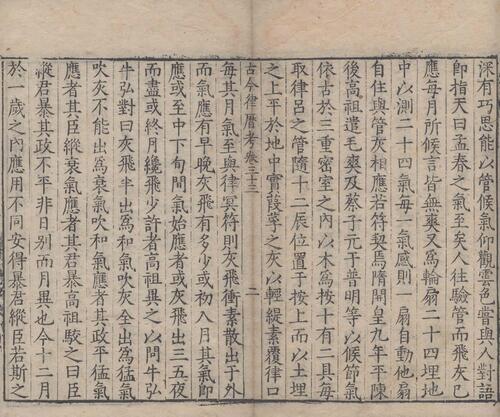 深有巧思能以管候氣仰觀雲色嘗與人對語
即指天曰孟春之氣至矣人往驗管而飛灰已
應每月所候言皆無爽又為輪扇二十四埋地
中以測二十四氣每一氣感則一扇自動他扇
自住與管灰相應若符契焉隋開皇九年平陳
後高祖遣毛爽及蔡子元于普明等以候節氣
依古於三重密室之內以木為按十有二具每
取律呂之管隨十二辰位置于按上而以土埋
之上平於地中實葭莩之灰以輕緹素覆律口
古今律曆考卷三十三
二
每其月氣至與律冥符則灰飛衝素散出于外
而氣應有早晚灰飛有多少或初入月其氣即
應或至中下旬間氣始應者或灰飛出三五夜
而盡或終月纔飛少許者高祖異之以問牛弘
牛弘對曰灰飛半出為和氣吹灰全出為猛氣
吹灰不能出為衰氣和氣應者其政平猛氣
應者其臣縱衰氣應者其君暴高祖駮之曰臣
縱君暴其政不平非日別而月異也今十二月
於一歲之內應用不同安得暴君縱臣若斯之